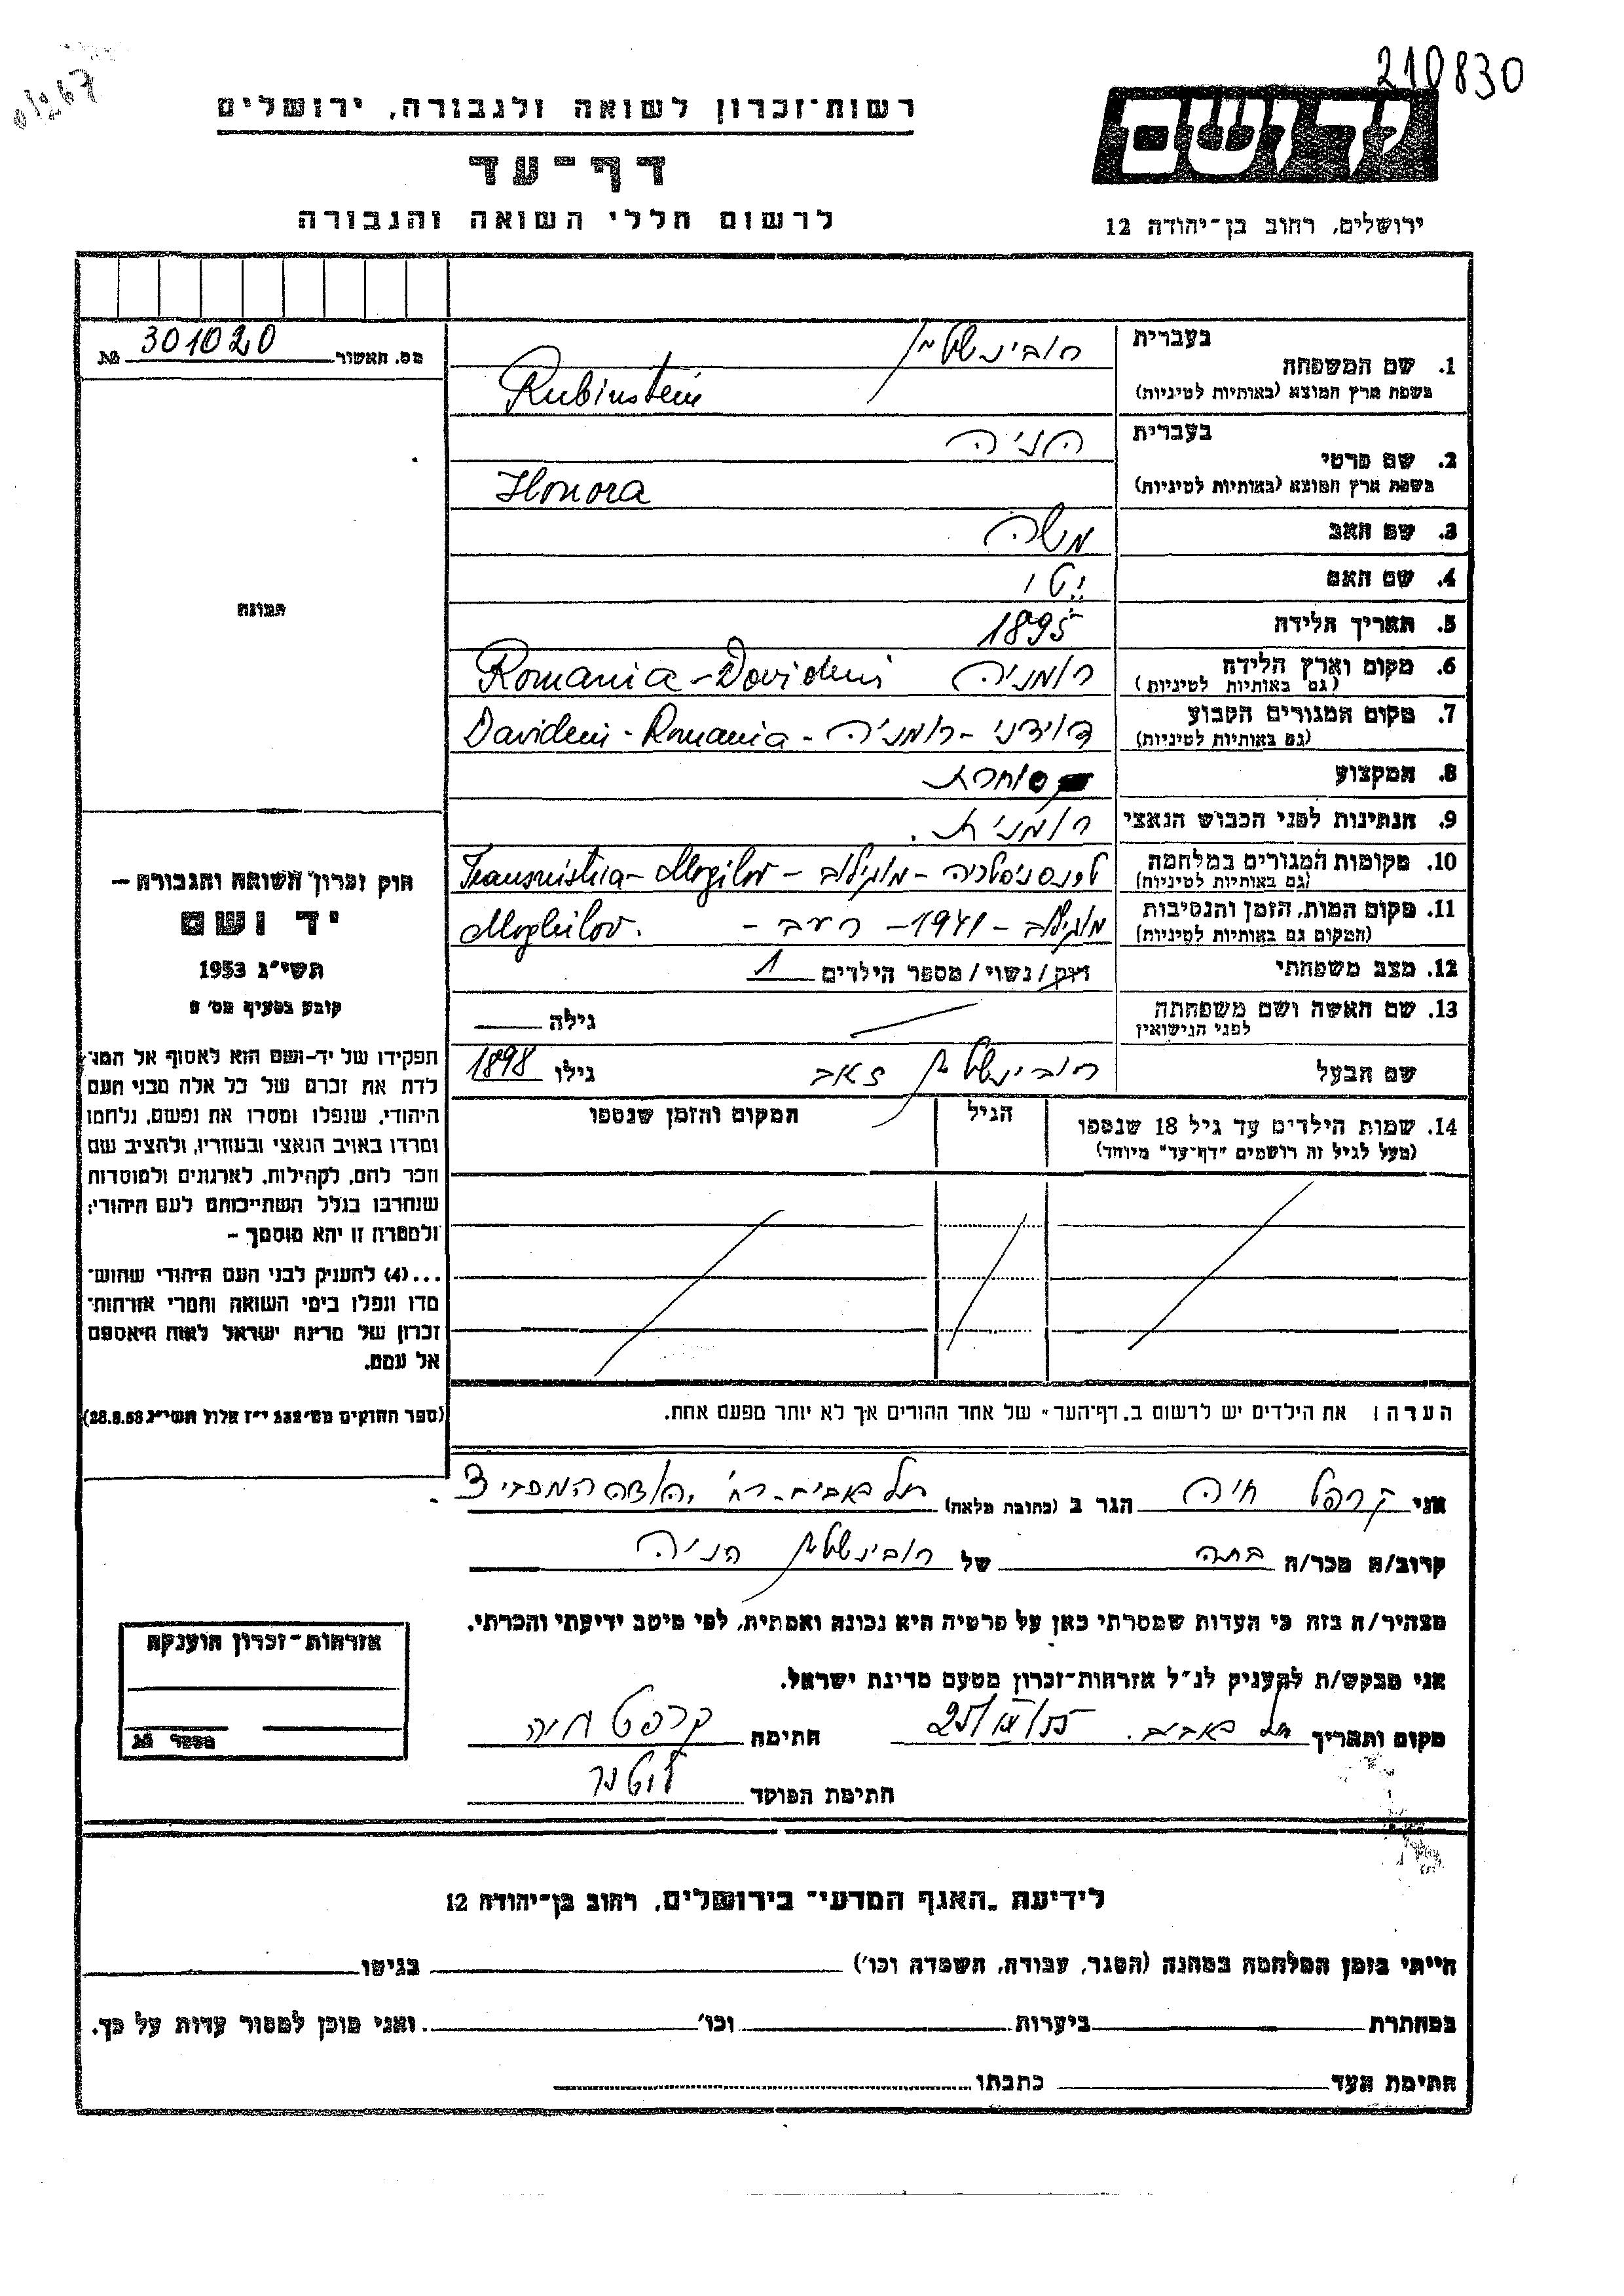 210830
0/267
רשות-זכרון לשואה ולגבורה, ירושלים
דף-עד
לרשום חללי השואה והגבורה
יד ושם
ירושלים, רחוב בן-יהודה 12
מס. תאשור № 301020
בעברית
1. שם המשפחה
רובינשטין
בשפת ארץ המוצא (באותיות לטיניות)
Rubinstein
בעברית
2. שם פרטי
הניה
בשפת ארץ המוצא (באותיות לטיניות)
Honora
3. שם האב משה
4. שם האם
5. תאריך הלידה 1895
6. מקום וארץ הלידה רומניה Romania - Davideni
(גם באותיות לטיניות)
7. מקום המגורים הקבוע דוידני - רומניה - Davideni - Romania
(גם באותיות לטיניות)
8. המקצוע סוחרת
9. הנתינות לפני הכבוש הנאצי רומנית.
10. מקומות המגורים במלחמה טרנסניסטריה - מוגילוב - Transnistria - Mogilov
(גם באותיות לטיניות)
11. מקום המות, הזמן והנסיבות מוגילוב - 1941 - רעב - Moghilov.
(המקום גם באותיות לטיניות)
12. מצב משפחתי רווק/נשוי/מספר הילדים 1
13. שם האשה ושם משפחתה גילה
לפני הנישואין
שם הבעל רובינשטין זאב גילו 1898
14. שמות הילדים עד גיל 18 שנספו הגיל המקום והזמן שנספו
(מעל לגיל זה רושמים "דף-עד" מיוחד)
הערה: את הילדים יש לרשום ב"דף-העד" של אחד ההורים אך לא יותר מפעם אחת.
תמונה
חוק זכרון השואה והגבורה —
יד ושם
תשי"ג 1953
קובע בסעיף מס' 2
תפקידו של יד-ושם הוא לאסוף אל המו־
לדת את זכרם של כל אלה מבני העם
היהודי, שנפלו ומסרו את נפשם, נלחמו
ומרדו באויב הנאצי ובעוזריו, ולהציב שם
וזכר להם, לקהילות, לארגונים ולמוסדות
שנחרבו בגלל השתייכותם לעם היהודי;
ולמטרה זו יהא מוסמך -
...(4) להעניק לבני העם היהודי שהוש־
מדו ונפלו בימי השואה והמרי אזרחות־
זכרון של מדינת ישראל לאות היאספם
אל עמם.
(ספר החוקים מס' 132 י"ז אלול תשי"ג 28.8.53)
אני קרפל חיה הגר ב (כתובת מלאה) תל אביב - רח' 3
קרוב/ה מכר/ה בתה של רובינשטין הניה
מצהיר/ה בזה כי העדות שמסרתי כאן על פרטיה היא נכונה ואמתית, לפי מיטב ידיעתי והכרתי.
אני מבקש/ת להעניק לנ"ל אזרחות-זכרון מטעם מדינת ישראל.
מקום ותאריך תל אביב. 25/ /55 חתימה קרפל חיה
חתימת הפוקד
אזרחות-זכרון הוענקה
מספר №
לידיעת "האגף המדעי" בירושלים, רחוב בן-יהודה 12
הייתי בזמן המלחמה במחנה (הסגר, עבודה, השמדה וכו') בגיטו
במחתרת ביערות וכו' ואני מוכן למסור עדות על כך.
חתימת העד כתבתו